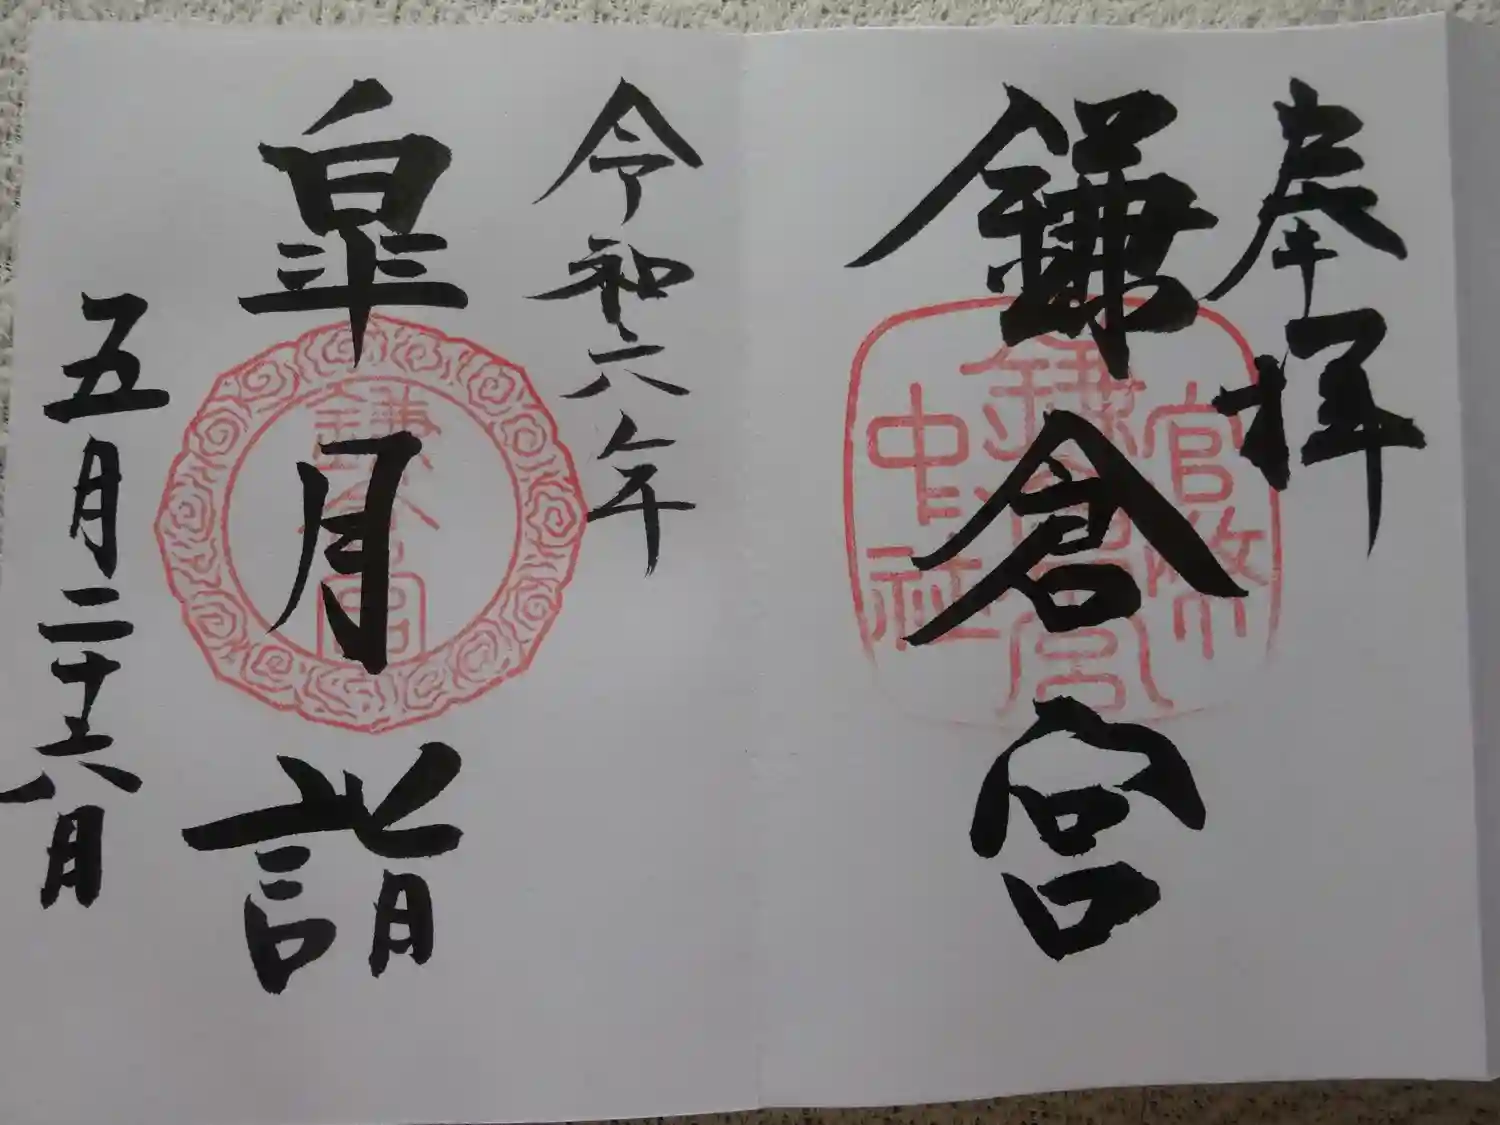 奉拝
鎌倉宮
官幣
鎌倉宮
中社
令和六年
皐月詣
鎌倉宮
五月二十六日